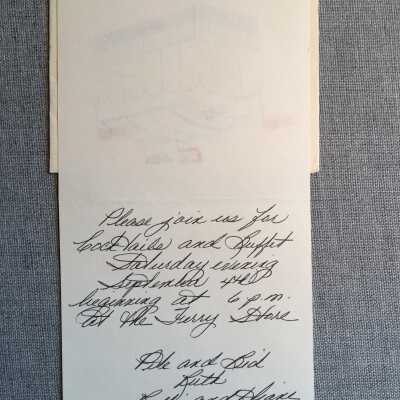 Please join us for
Cocktails and Buffet
Saturday evening
September 4th
beginning at 6 p.m.
at the Furry Store
and
Ruth
and